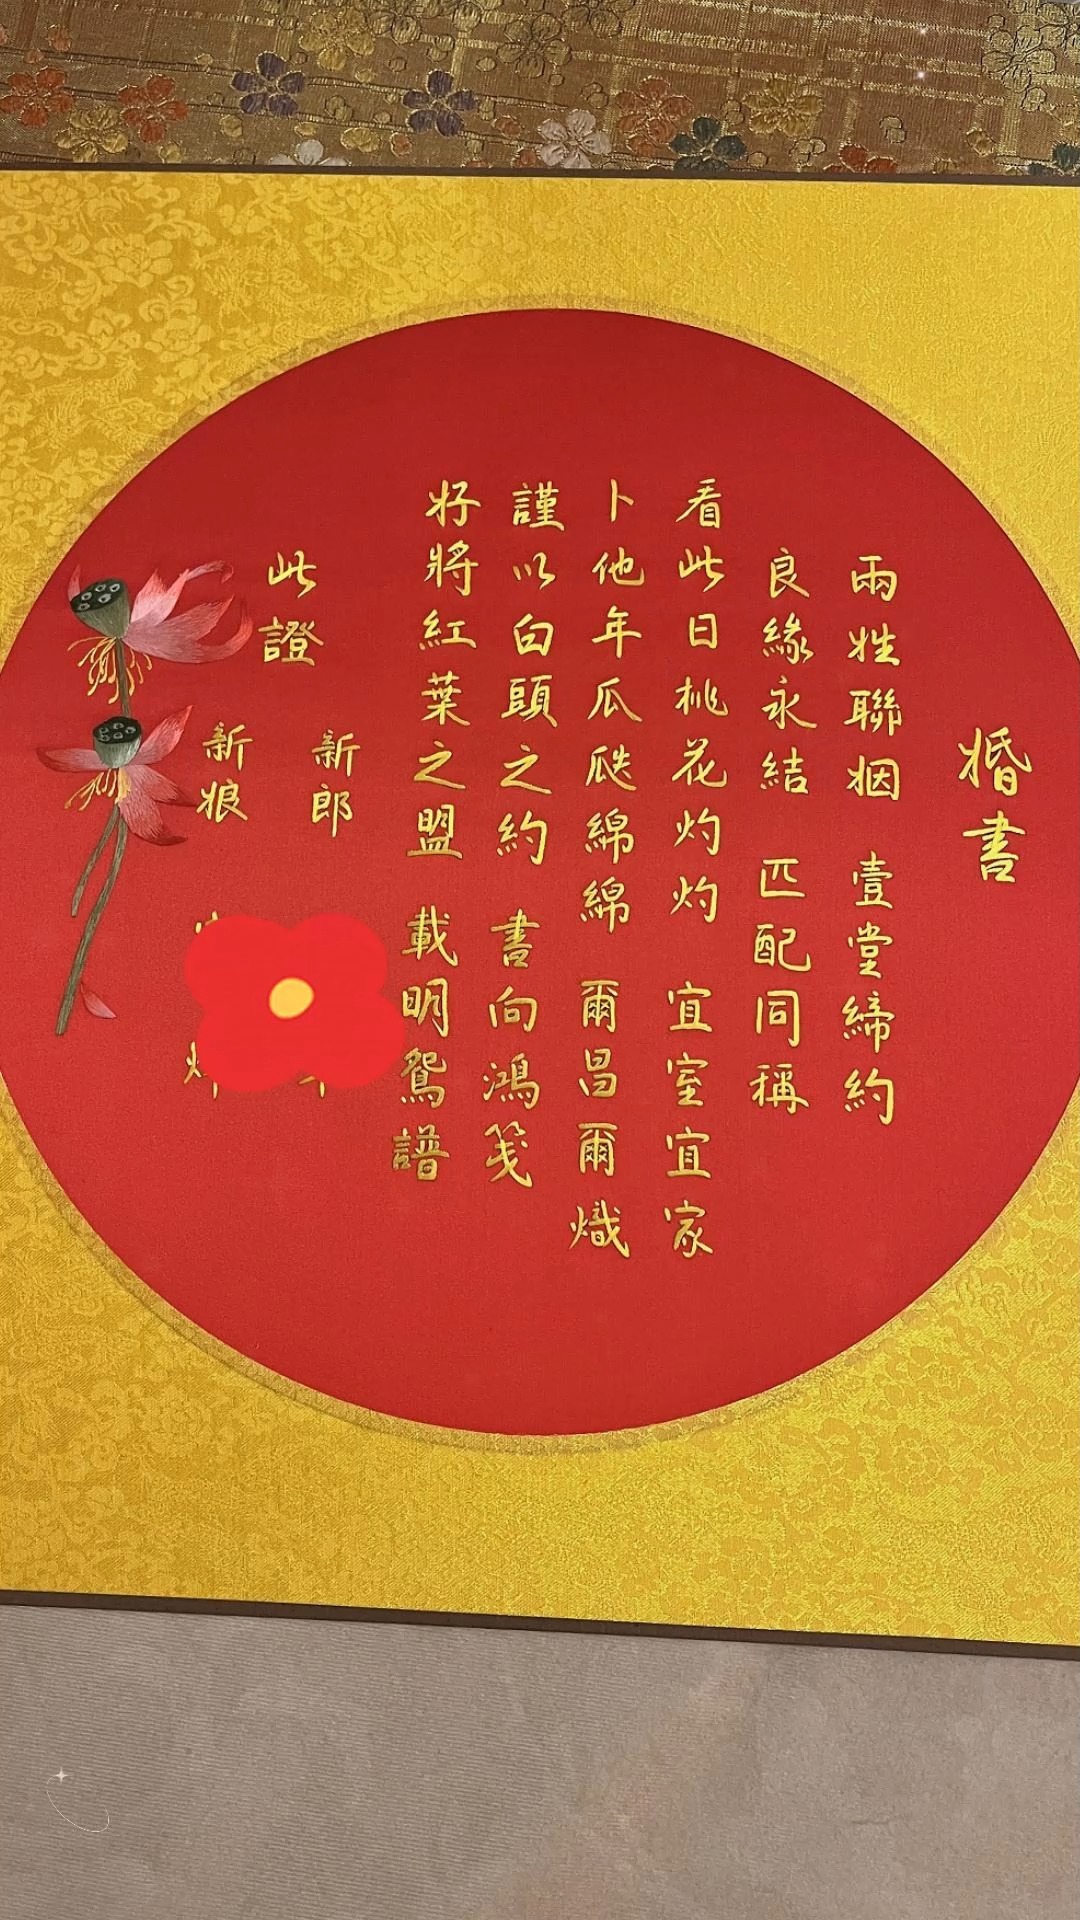 婚書
兩姓聯姻 壹堂締約
良緣永結 匹配同稱
看此日桃花灼灼 宜室宜家
卜他年瓜瓞綿綿 爾昌爾熾
謹以白頭之約 書向鴻箋
好將紅葉之盟 載明鴛譜
此證
新郎
新娘